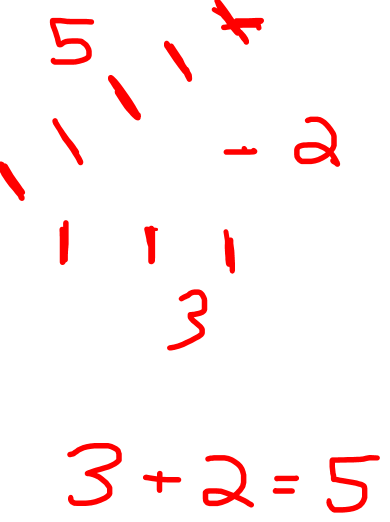 5
- 2
3
3 + 2 = 5